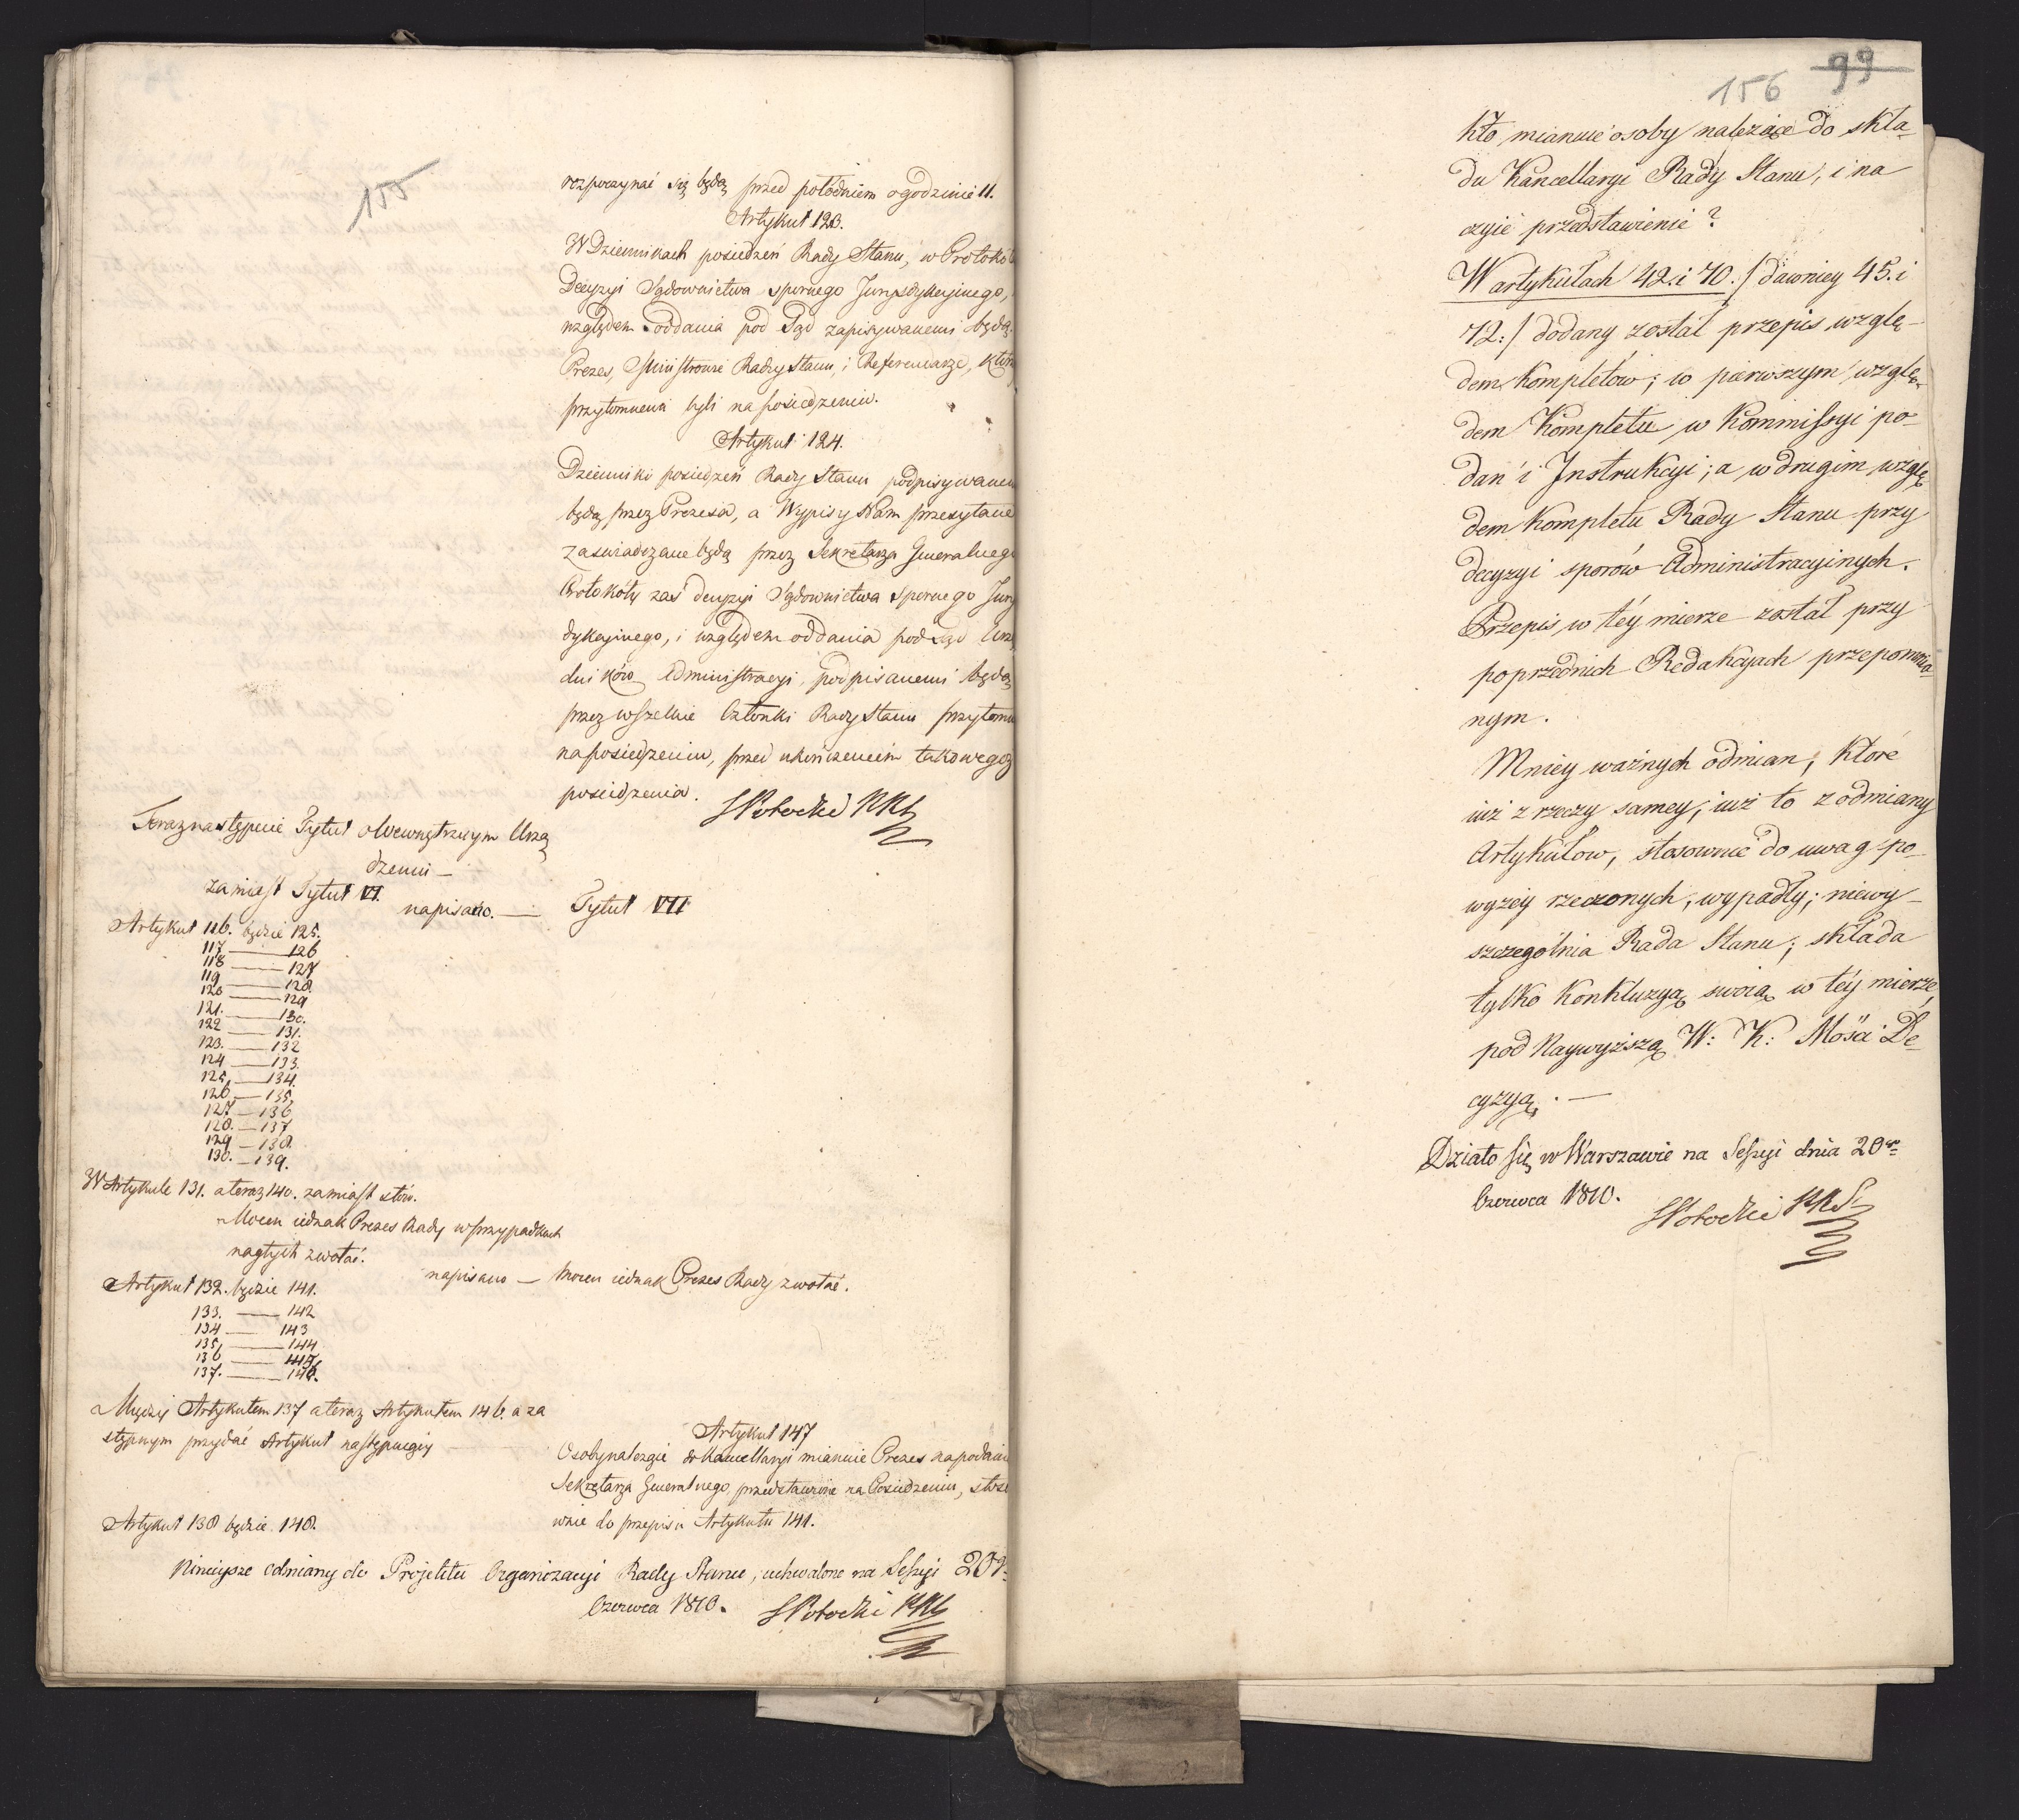 155
rozpoczynać się będą przed południem o godzinie 11.
Artykuł 123.
W Dziennikach posiedzeń Rady Stanu, w Protokó
Decyzyi Sądownictwa spornego Jurysdykcyinego,
względem oddania pod Sąd zapisywanemi będą
Prezes, Ministrowie Rady Stanu, i Referendarze, którz
przytomnemi byli na posiedzeniu.
Artykuł 124.
Dzienniki posiedzeń Rady Stanu podpisywanem
będą przez Prezesa, a Wypisy Nam przesyłane
zaświadczane będą przez Sekretarza Generalnego
Protokóły zaś decyzyi Sądownictwa spornego Jury
dykcyinego, i względem oddania pod Sąd Urzę
dników Administracyi, podpisanemi będą
przez wszelkie Członki Rady Stanu przytomn
na posiedzeniu, przed ukończeniem takowegoż
posiedzenia.
SPotocki
Teraz następuie Tytuł o Wewnętrznym Urzą
dzeniu —
zamiast Tytuł VI. napisano. — Tytuł VII
Artykuł 116. będzie 125.
117 — 126
118 — 127
119 — 128.
120 — 129
121. — 130.
122 — 131.
123. — 132
124 — 133.
125. — 134.
126. — 135.
127. — 136
128. — 137
129 — 138.
130. — 139.
W Artykule 131. a teraz 140. zamiast słów.
Mocen iednak Prezes Rady w przypadkach
nagłych zwołać.
napisano — Mocen iednak Prezes Rady zwołać.
Artykuł 132. będzie 141.
133. — 142
134 — 143
135. — 144
136 — 145.
137. — 146.
Między Artykułem 137 a teraz Artykułem 146. a za
stępnym przydać Artykuł następuiący —
Artykuł 147
Osoby należące do Kancellaryi mianuie Prezes na podani
Sekretarza Generalnego, przedstawione na Posiedzeniu, stoso
wnie do przepisu Artykułu 141.
Artykuł 138 będzie 148.
Ninieysze odmiany do Projektu Organizacyi Rady Stanu, uchwalone na Sessyi 20
Czerwca 1810. SPotocki
156 99
kto mianuie osoby należące do skła-
du Kancellaryi Rady Stanu, i na
czyie przedstawienie?
W artykułach 42. i 70. /: dawniey 45. i
72. :/ dodany został przepis wzglę-
dem kompletów; w pierwszym wzglę-
dem Kompletu w Kommissyi po-
dań i Instrukcyi; a w drugim wzglę
dem Kompletu Rady Stanu przy
decyzyi sporów Administracyinych.
Przepis w téy mierze został przy
poprzednich Redakcyach przepomnia-
nym.
Mniey ważnych odmian, które
iuż z rzeczy samey, iuż to z odmiany
Artykułów, stosownie do uwag po-
wyżey rzeczonych, wypadły; niewy-
szczególnia Rada Stanu; składa
tylko Konkluzyą swoią w téy mierze,
pod Naywyższą W: K: Mości De-
cyzyą. —
Działo się w Warszawie na Sessyi dnia 20go
Czerwca 1810. SPotocki